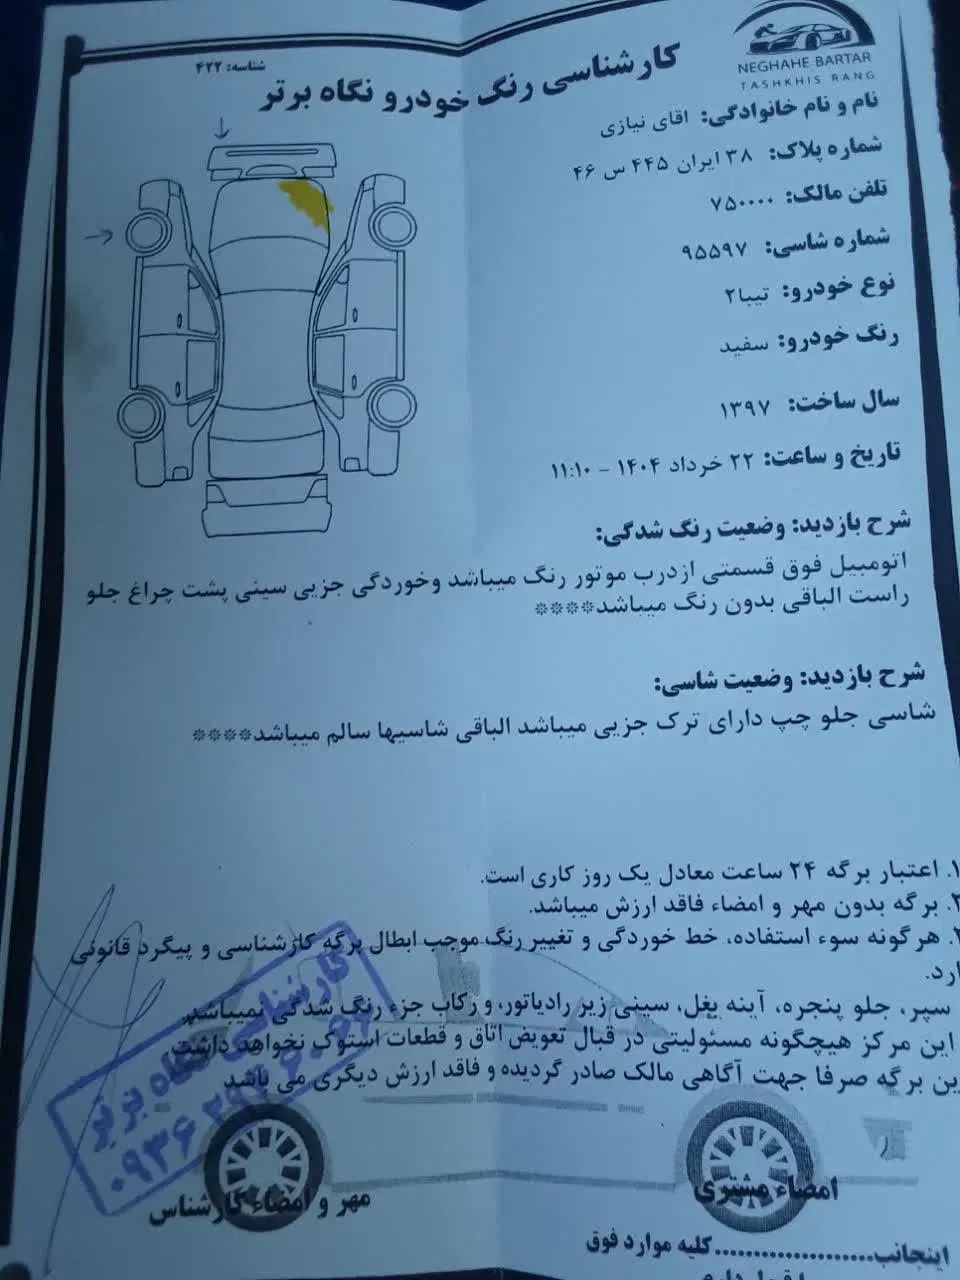 NEGHAHE BARTAR
TASHKHIS RANG
کارشناسی رنگ خودرو نگاه برتر
شناسه: ۴۲۲
نام و نام خانوادگی: اقای نیازی
شماره پلاک: ۳۸ ایران ۴۴۵ س ۴۶
تلفن مالک: ۷۵۰۰۰۰
شماره شاسی: ۹۵۵۹۷
نوع خودرو: تیبا۲
رنگ خودرو: سفید
سال ساخت: ۱۳۹۷
تاریخ و ساعت: ۲۲ خرداد ۱۴۰۴ - ۱۱:۱۰
شرح بازدید: وضعیت رنگ شدگی:
اتومبیل فوق قسمتی ازدرب موتور رنگ میباشد وخوردگی جزیی سینی پشت چراغ جلو
راست الباقی بدون رنگ میباشد****
شرح بازدید: وضعیت شاسی:
شاسی جلو چپ دارای ترک جزیی میباشد الباقی شاسیها سالم میباشد****
۱. اعتبار برگه ۲۴ ساعت معادل یک روز کاری است.
۲. برگه بدون مهر و امضاء فاقد ارزش میباشد.
هرگونه سوء استفاده، خط خوردگی و تغییر رنگ موجب ابطال برگه کارشناسی و پیگرد قانونی
ارد.
سپر، جلو پنجره، آینه بغل، سینی زیر رادیاتور، و رکاب جزء رنگ شدگی نمیباشد.
این مرکز هیچگونه مسئولیتی در قبال تعویض اتاق و قطعات استوک نخواهد داشت
ین برگه صرفا جهت آگاهی مالک صادر گردیده و فاقد ارزش دیگری می باشد
کارشناسی نگاه برتر
امضاء مشتری
مهر و امضاء کارشناس
اینجانب....................کلیه موارد فوق